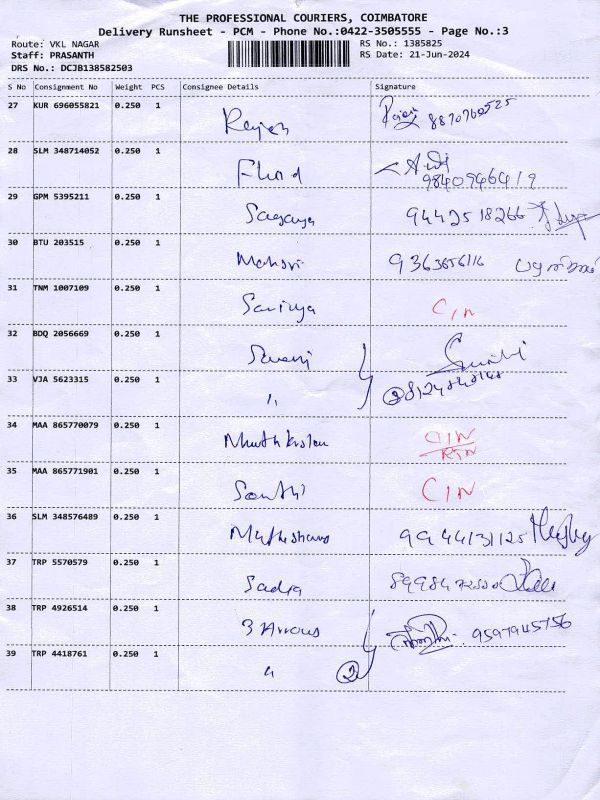 THE PROFESSIONAL COURIERS, COIMBATORE
Delivery Runsheet - PCM - Phone No.:0422-3505555 - Page No.:3
Route: VKL NAGAR
Staff: PRASANTH
DRS No.: DCJB138582503
RS No.: 1385825
RS Date: 21-Jun-2024
S No Consignment No Weight PCS Consignee Details Signature
27 KUR 696055821 0.250 1 Rajesh
28 SLM 348714052 0.250 1 9840946419
29 GPM 5395211 0.250 1 Sagaya 9442518266
30 BTU 203515 0.250 1 9363656116
31 TNM 1007109 0.250 1 C/N
32 BDQ 2056669 0.250 1
33 VJA 5623315 0.250 1 "
34 MAA 865770079 0.250 1 C/N
RTN
35 MAA 865771901 0.250 1 Santhi C/N
36 SLM 348576489 0.250 1 9944131125
37 TRP 5570579 0.250 1 Sadia
38 TRP 4926514 0.250 1 3 Arrows 9597945756
39 TRP 4418761 0.250 1 " 2